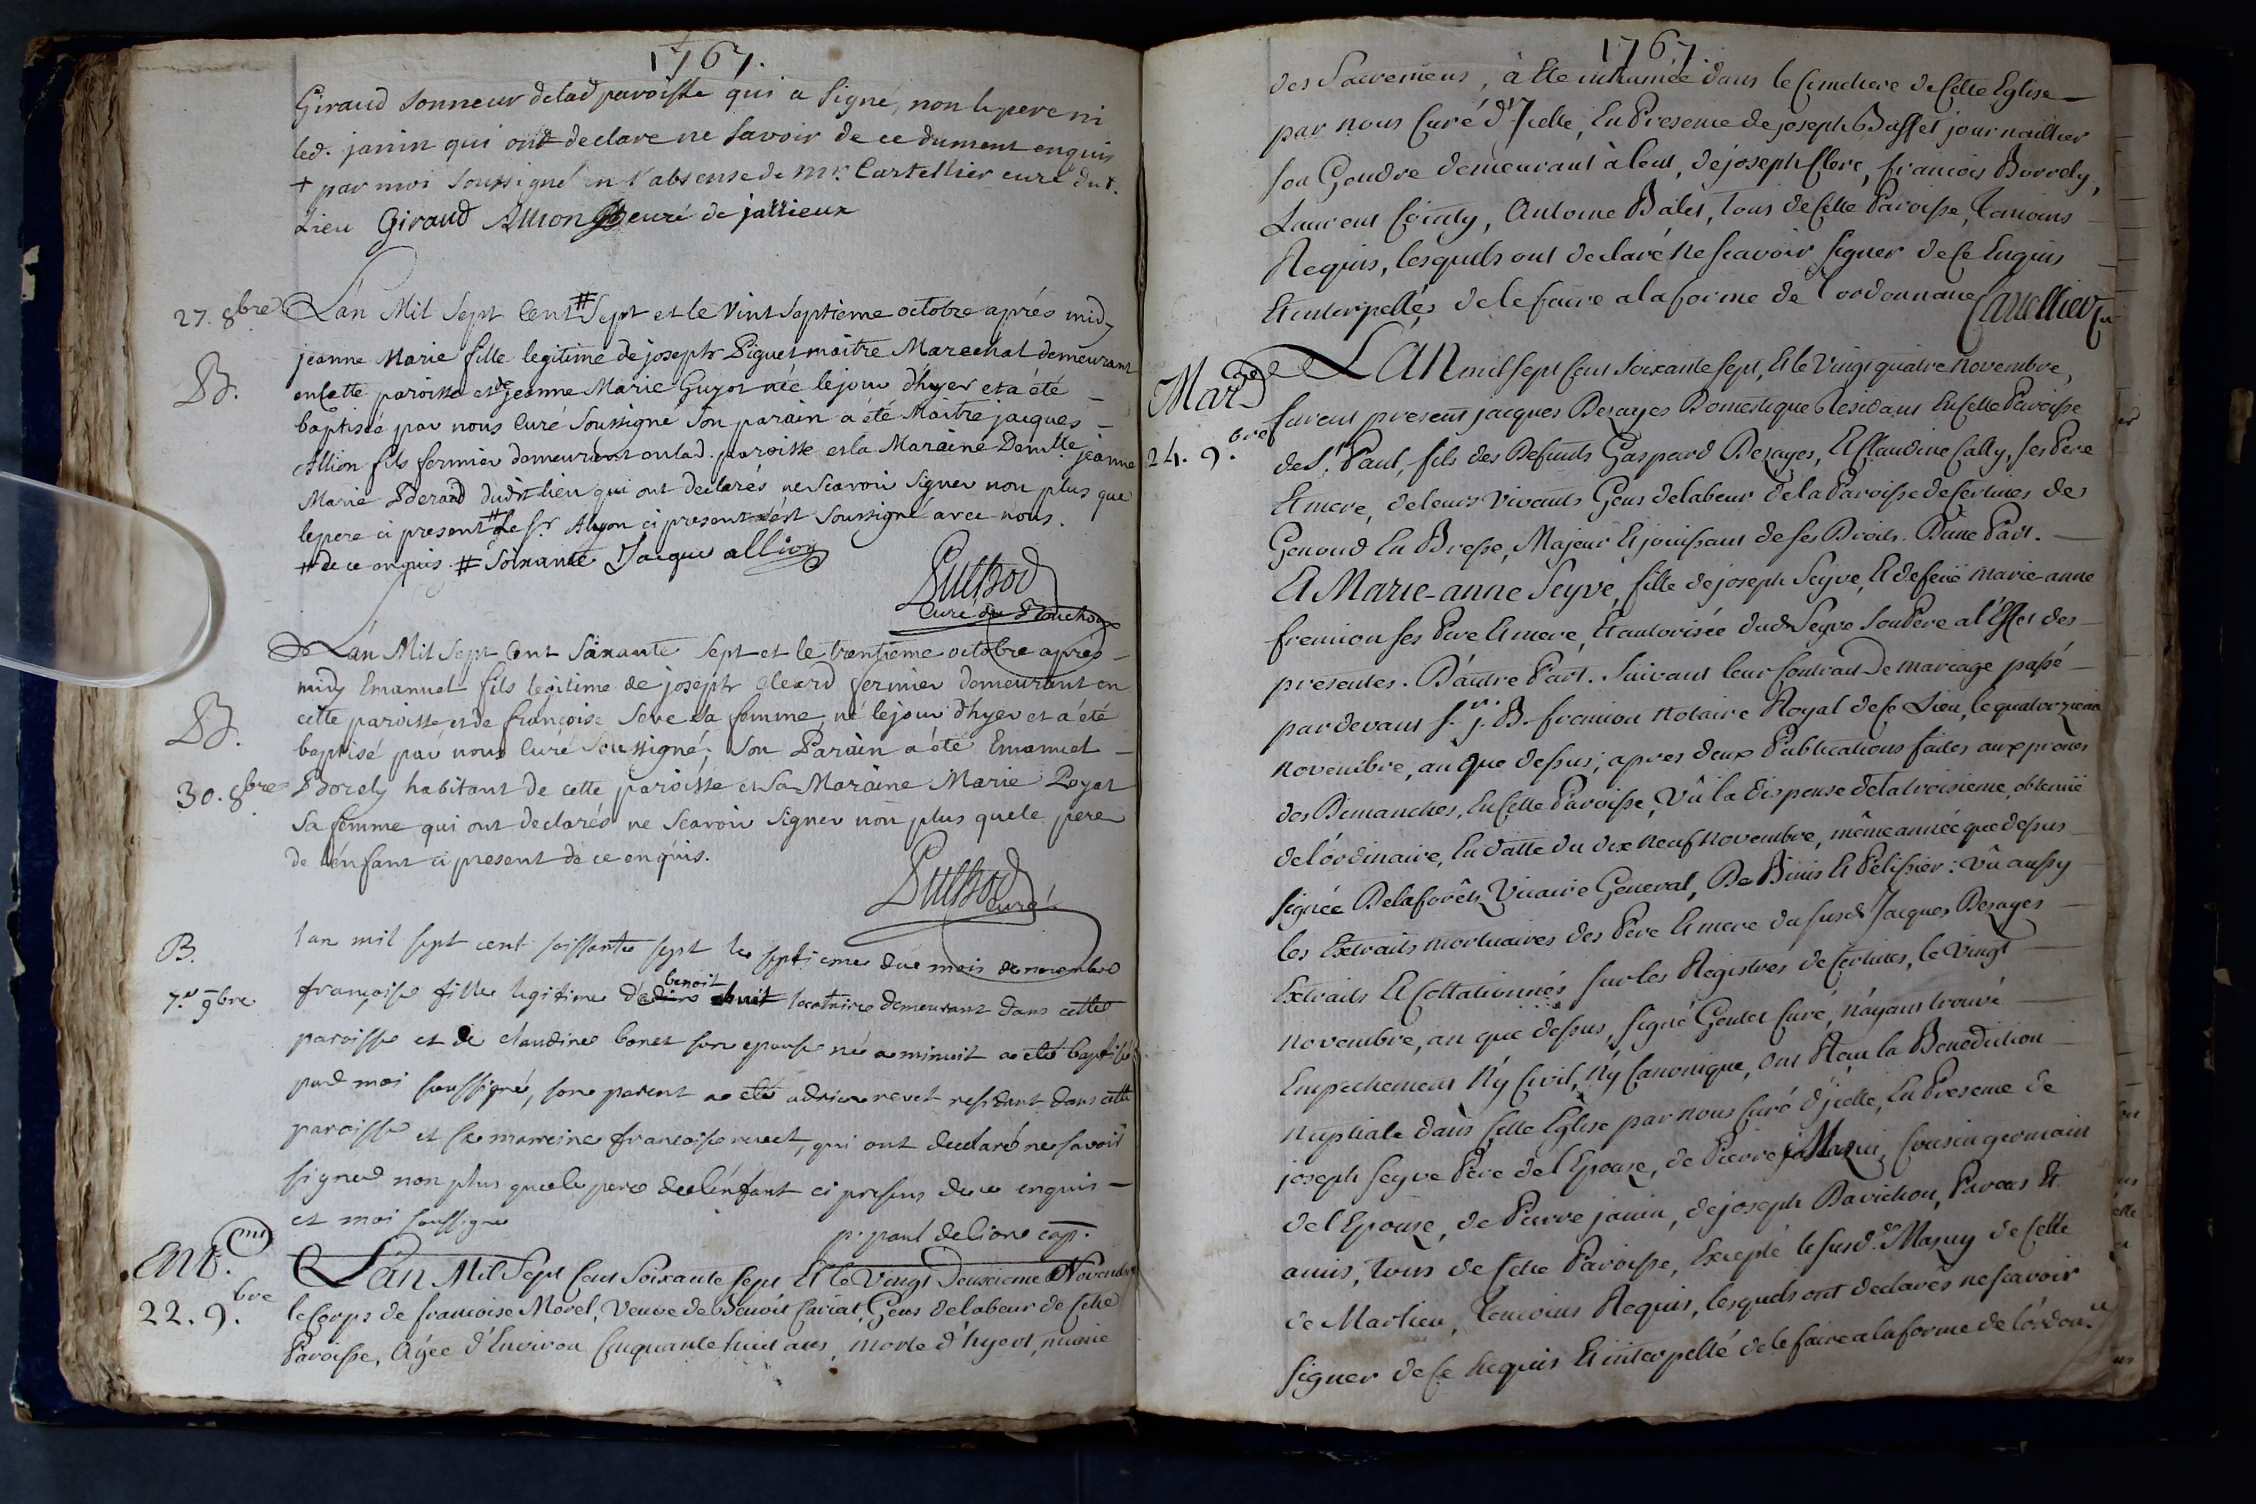 1767.
Giraud sonneur delad paroisse qui a signé, non le pere ni
led. janin qui ont declare ne savoir de ce dument enquis
+ par moi soussigné en l'absense de mr. Cartellier curé dud.
Lieu Giraud Allion curé de jallieux
27. 8bre
Lán Mil Sept Cent # Sept et le Vint Septieme octobre aprés midy
jeanne Marie fille legitime de joseph Piguet maitre Marechal demeurant
B.
en cette paroisse et de jeanne Marie Guyot née le jour d'hyer et a été
baptisée par nous Curé Soussigné Son parain a été Maitre jacques
Allion fils fermier demeurant en lad. paroisse et la Maraine Demlle jeanne
Marie dudit lieu qui ont declarés ne Scavoir Signer non plus que
le pere ci present # Le Sr. Alyon ci present s'est Soussigné avec nous.
+ de ce enquis. # Soixante Jacque allion
Puthod
Curé du
Lán Mil Sept Cent Soixante Sept et le trentieme octobre apres
midy Emanuel fils legitime de joseph Cleard fermier demeurant en
cette paroisse et de françoise Seve sa femme, né le jour d'hyer et a été
B.
baptisé par nous Curé Soussigné; Son Parain a été Emanuel
30. 8bre
Borely habitant de cette paroisse et Sa Maraine Marie Poyat
Sa femme qui ont declarés ne Scavoir Signer non plus que le pere
de l'énfant ci present de ce enquis.
Puthod curé
B.
lan mil sept cent soissante sept le septieme du mois de novembre
7.e 9bre
françoise fille legitime d' benoit locataire demeurant dans cette
paroisse et de claudine bonet son epouse né a minuit a eté baptisé
par moi soussigné, son parent a eté adrien revet residant dans cette
paroisse et sa marreine francoise revet, qui ont declaré ne savoir
signer non plus que le pere de lénfant ci presens de ce enquis
et moi soussigné
p. paul de lion cap.
Ent.
22. 9.bre
Lán Mil Sept Cent Soixante Sept Et le Vingt Deuxieme Novembre
le Corps de francoise Morel, Veuve de Benoit Curiat, Gens de labeur de Cette
Paroisse, Agée d'Environ Cinquante huit ans, morte d'hyert, munie
1767.
des Sacremens, à Ete inhumée dans le Cimetiere de Cette Eglise
par nous Curé d'Icelle, En Presence de joseph Basset journaillier
son Gendre demeurant à leut, de joseph Clerc, francois Borrely,
Laurent Cointy, Antoine Balet, Tous de Cette Paroisse, Temoins
Requis, lesquels ont declaré Ne scavoir signer de Ce Enquis
Et interpellés de le faire a la forme de l'ordonnance Cartellier Cu
Mar.ge
24. 9.bre
LAN mil sept Cent Soixante sept, Et le Vingt quatre Novembre,
furent presens jacques Dezayes Domestique Residant En Cette Paroisse
de St. Paul, fils des Defunts Gaspard Dezayes, Et Claudine Cally, ses Pere
Et mere, de leurs Vivants Gens de labeur de la Paroisse de Certines des
Genoud En Bresse, Majeur Et jouissant de ses Droits. D'une Part.
Et Marie-anne Seyve, fille de joseph Seyve, Et de feüe marie-anne
fremion ses Pere Et mere, Et autorisée dud. Seyve Son Pere a l'Effet des
presentes. D'autre Part. Suivant leur Contract De mariage passé
par devant s.r j. B. fremion Notaire Royal de Ce Lieu, le quatorzieme
Novembre, an Que dessus; apres deux Publications faites aux prones
des Dimanches, En Cette Paroisse, Vû la Dispense de la troisieme, obtenuë
de l'ordinaire, En datte du dix Neuf Novembre, même année que dessus
signée Delaforêts Vicaire Géneral, De Binis Et Pelissier: Vû aussy
les Extraits mortuaires des Pere Et mere du susd. Jacques Dezayes
Extraits Et Collationnés sur les Registres de Certines, le Vingt
Novembre, an que dessus, signé Goutet Curé, N'ayant trouvé
Empechement N'y Civil, N'y Canonique, Ont Reçu la Benediction
Nuptiale dans Cette Eglise par Nous Curé d'icelle, En Presence de
joseph Seyve Pere de l'Epouse, de Pierre Mazui, Cousin germain
de l'Epouse, de Pierre janin, de joseph Davichou, Parens Et
amis, Tous de Cette Paroisse, Excepté le susd. Mazuy de Celle
de Marlieu, Temoins Requis, lesquels ont declarés ne scavoir
signer de Ce Requis Et interpellé de le faire a la forme de l'órdon.ce